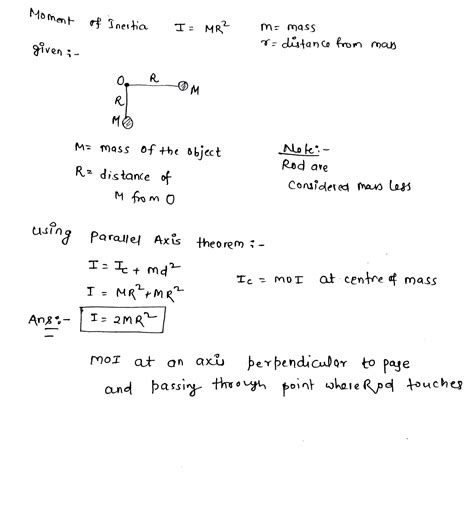 Moment of Inertia I = MR² m = mass
r = distance from mass
given :-
O R M
R
M
M = mass of the object Note :-
R = distance of Rod are
M from O Considered mass less
using Parallel Axis theorem :-
I = Ic + md²
I = MR² + MR² Ic = MOI at centre of mass
Ans :- I = 2MR²
MOI at an axis perpendicular to page
and passing through point where Rod touches